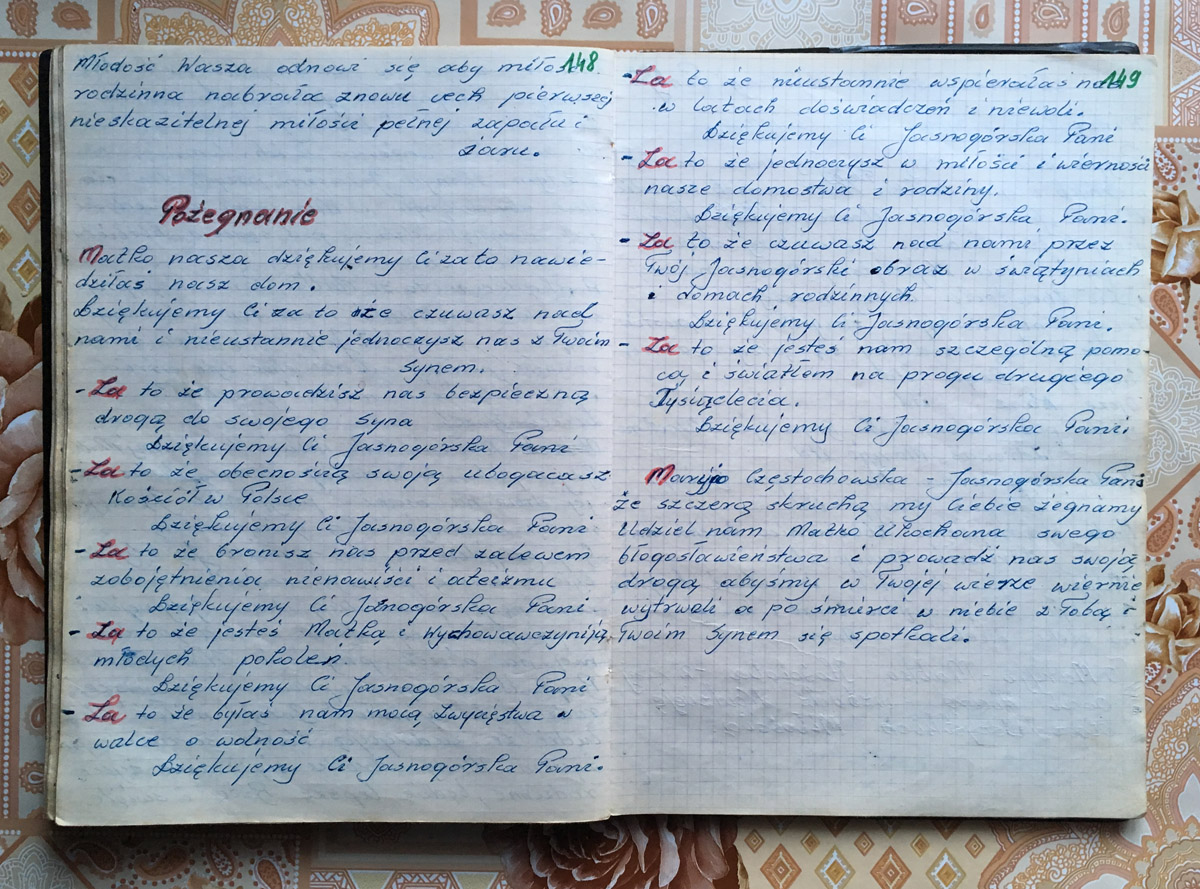 148
Młodość Wasza odnowi się aby miłość
rodzinna nabrała znowu cech pierwszej
nieskazitelnej miłości pełnej zapału i
żaru.
Pożegnanie
Matko nasza dziękujemy Ci za to nawie-
dziłaś nasz dom.
Dziękujemy Ci za to że czuwasz nad
nami i nieustannie jednoczysz nas z Twoim
Synem.
- Za to że prowadzisz nas bezpieczną
drogą do swojego Syna
Dziękujemy Ci Jasnogórska Pani
- Za to że obecnością swoją ubogacasz
Kościół w Polsce
Dziękujemy Ci Jasnogórska Pani
- Za to że bronisz nas przed zalewem
zobojętnienia nienawiści i ateizmu
Dziękujemy Ci Jasnogórska Pani.
- Za to że jesteś Matką i Wychowawczynią
młodych pokoleń.
Dziękujemy Ci Jasnogórska Pani
- Za to że byłaś nam mocą zwycięstwa w
walce o wolność
Dziękujemy Ci Jasnogórska Pani.
149
- Za to że nieustannie wspierałaś nas
w latach doświadczeń i niewoli.
Dziękujemy Ci Jasnogórska Pani
- Za to że jednoczysz w miłości i wierności
nasze domostwa i rodziny.
Dziękujemy Ci Jasnogórska Pani.
- Za to że czuwasz nad nami przez
Twój Jasnogórski obraz w świątyniach
i domach rodzinnych.
Dziękujemy Ci Jasnogórska Pani.
- Za to że jesteś nam szczególną pomo-
cą i światłem na progu drugiego
Tysiąclecia.
Dziękujemy Ci Jasnogórska Pani
Maryjo Częstochowska - Jasnogórska Pani
że szczerą skruchą my Ciebie żegnamy
Udziel nam Matko Ukochana swego
błogosławieństwa i prowadź nas swoją
drogą abyśmy w Twojej wierze wiernie
wytrwali a po śmierci w niebie z Tobą i
Twoim Synem się spotkali.